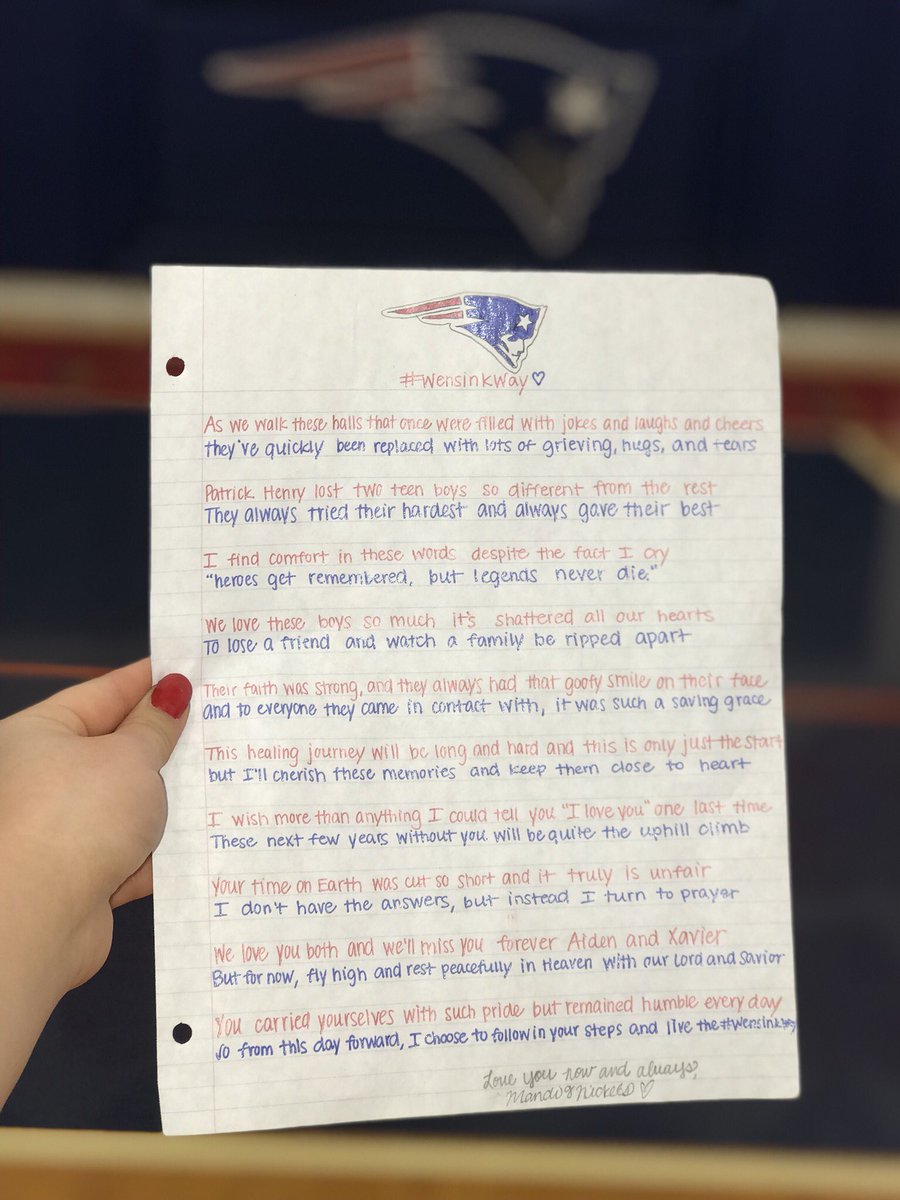 #WensinkWay♡
As we walk these halls that once were filled with jokes and laughs and cheers
they've quickly been replaced with lots of grieving, hugs, and tears
Patrick Henry lost two teen boys so different from the rest
They always tried their hardest and always gave their best
I find comfort in these words despite the fact I cry
"heroes get remembered, but legends never die."
We love these boys so much it's shattered all our hearts
To lose a friend and watch a family be ripped apart
Their faith was strong, and they always had that goofy smile on their face
and to everyone they came in contact with, it was such a saving grace
This healing journey will be long and hard and this is only just the start
but I'll cherish these memories and keep them close to heart
I wish more than anything I could tell you "I love you" one last time
These next few years without you will be quite the uphill climb
Your time on Earth was cut so short and it truly is unfair
I don't have the answers, but instead I turn to prayer
We love you both and we'll miss you forever Aiden and Xavier
But for now, fly high and rest peacefully in Heaven with our Lord and Savior
You carried yourselves with such pride but remained humble every day
so from this day forward, I choose to follow in your steps and live the #Wensinkway
Love you now and always,
♡